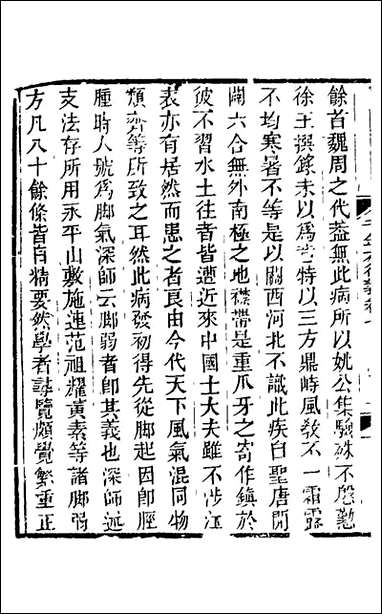 餘首魏周之代葢無此病所以姚公集驗殊不殷懃
徐王撰錄未以爲意特以三方鼎峙風敎不一霜露
不均寒暑不等是以關西河北不識此疾自聖唐開
闢六合無外南極之地襟帶是重爪牙之寄作鎭於
彼不習水土往者皆遭近來中國士大夫雖不涉江
表亦有居然而患之者良由今代天下風氣混同物
類齊等所致之耳然此病發初得先從脚起因卽脛
腫時人號爲脚氣深師云脚弱者卽其義也深師述
支法存所用永平山敷施連范祖耀黃素等諸脚弱
方凡八十餘條皆自精要然學者尋覽頗覺繁重正